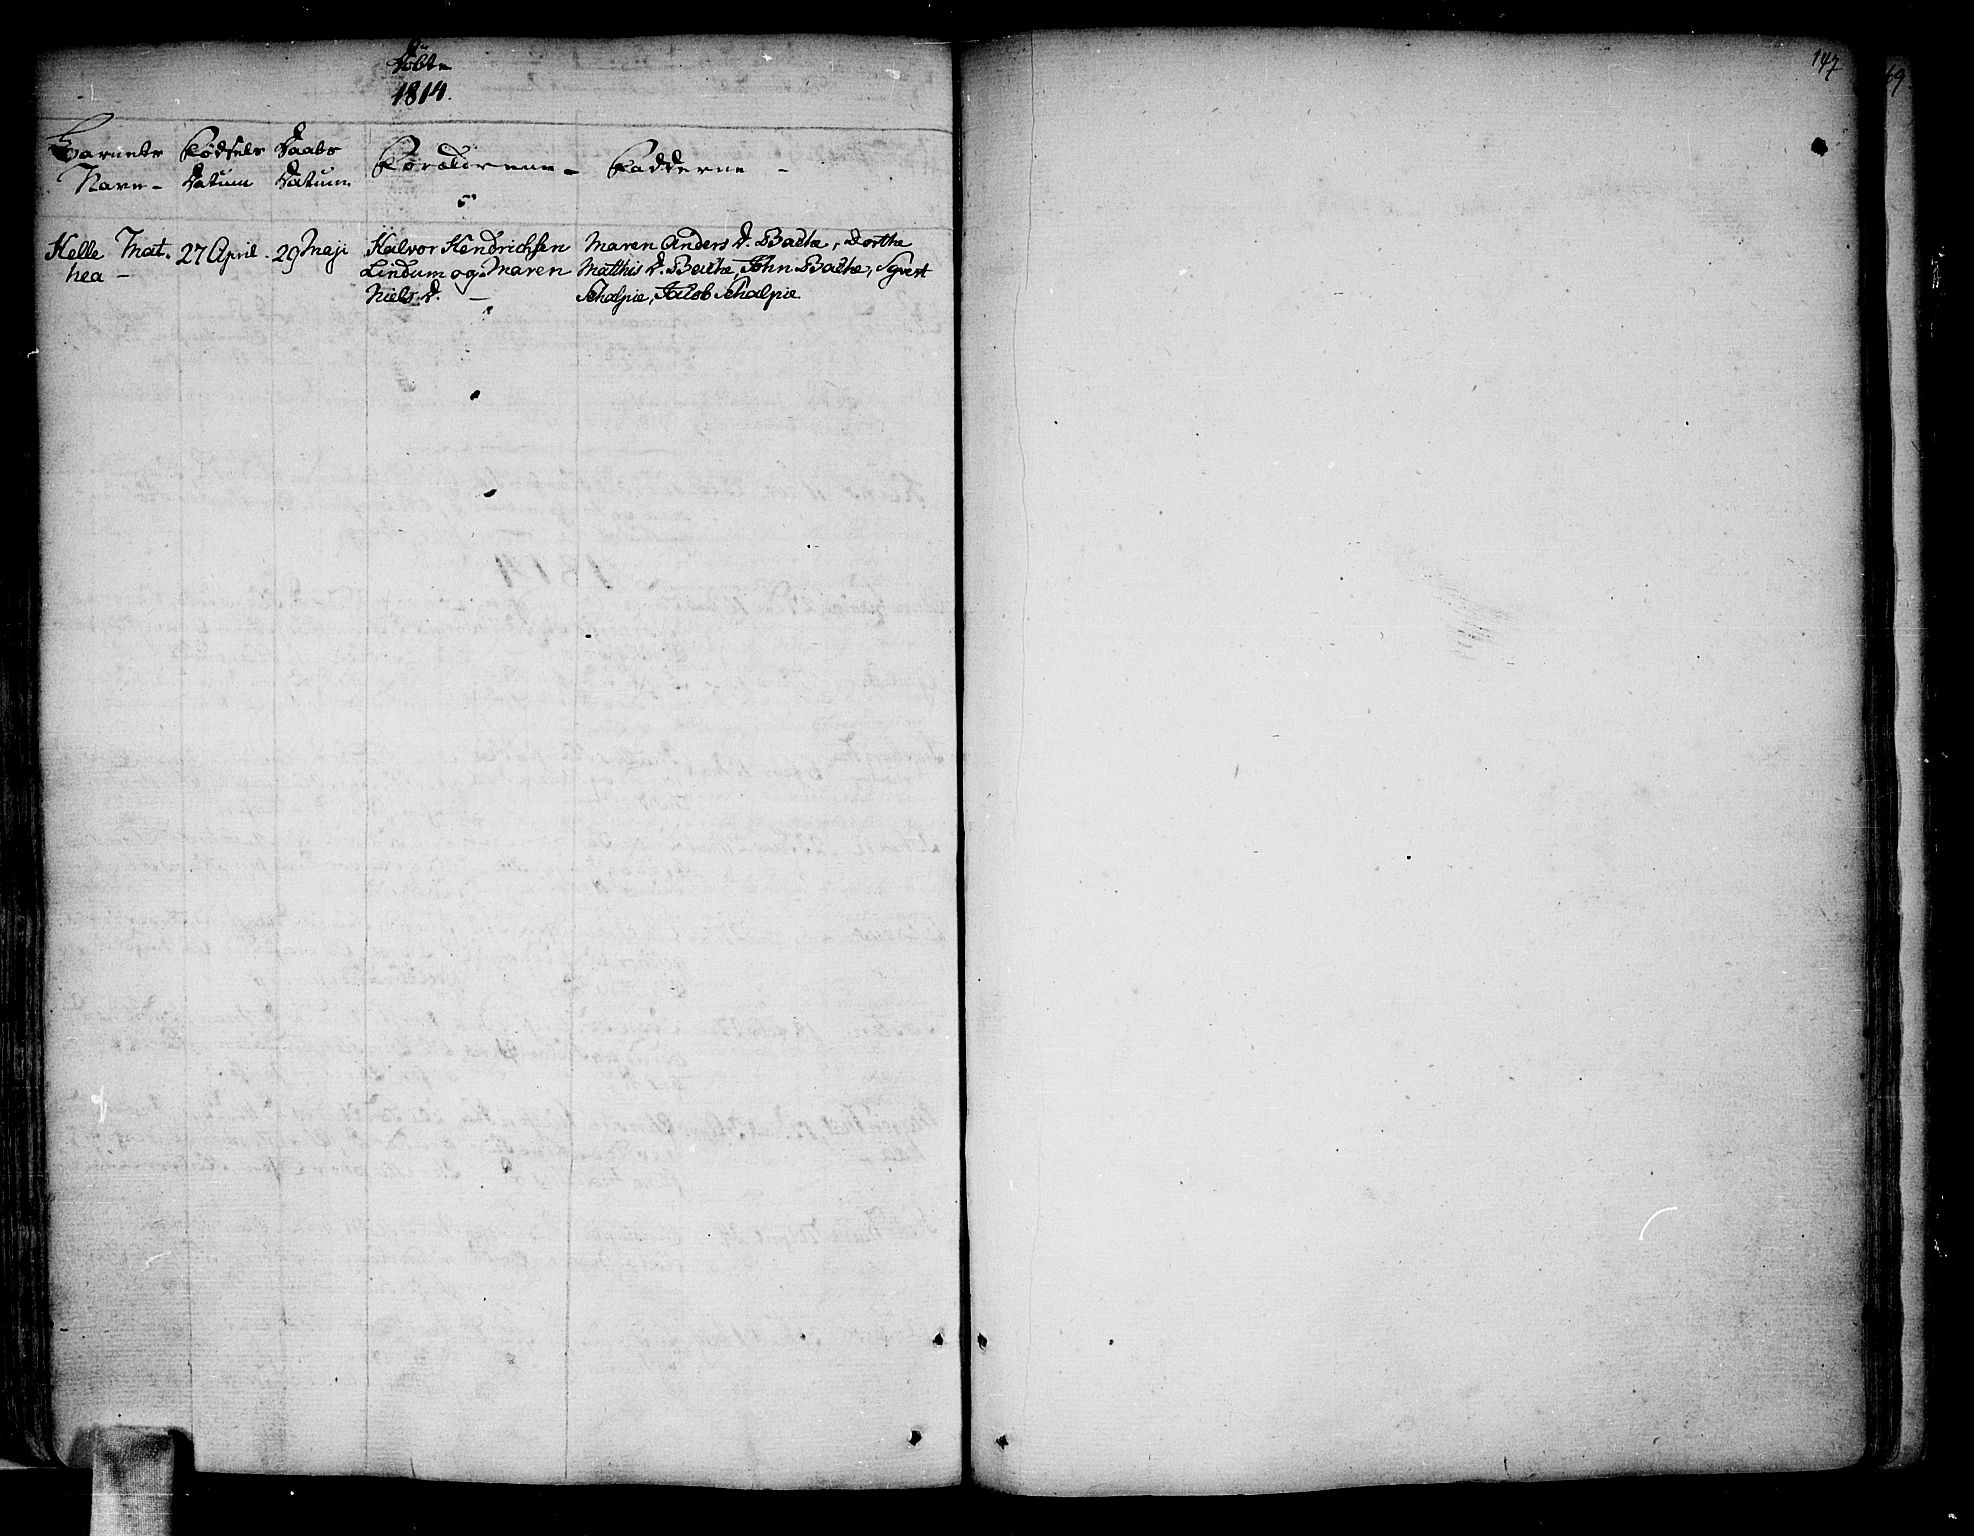 Døbte
1814.
Barnets Navn -
Fødsels Datum
Daabs Datum
Forældrene -
Fadderne -
Helle Mat.
hea -
27 April.
29 Maji
Halvor Hendrichsen
Lindum og Maren
Niels D. -
Maren Anders D. Bache, Dorthe
Matthis D. Bache, John Bache, Syvert
Schalpie, Jacob Schalpie
147